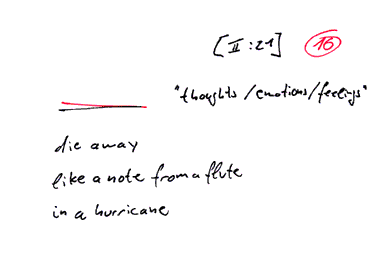 [II:21] 16
"thoughts/emotions/feelings"
die away
like a note from a flute
in a hurricane